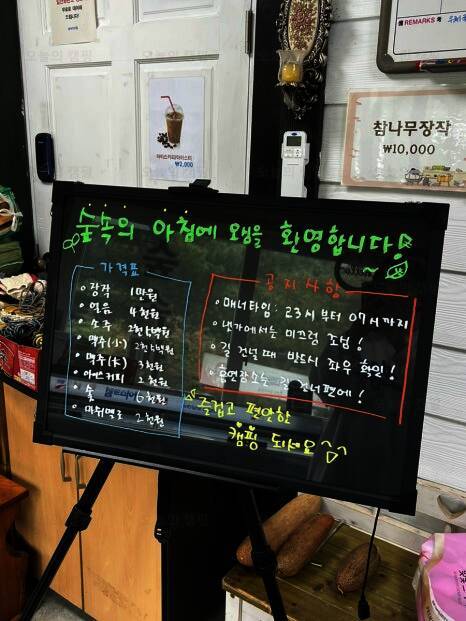 드립니다!
REMARKS
아이스커피/아이스티
₩2,000
참나무장작
₩10,000
숲속의 아침에 오심을 환영합니다!
가격표
장작 1만원
얼음 4천원
소주 2천5백원
맥주(小) 2천5백원
맥주(大) 3천원
아이스커피 2천원
숯 6천원
마쉬멜로 2천원
공지사항
매너타임: 23시부터 07시까지
냇가에서는 미끄럼 조심!
길 건널 때 반드시 좌우 확인!
흡연장소는 길 건너편에!
즐겁고 편안한
캠핑 되세요